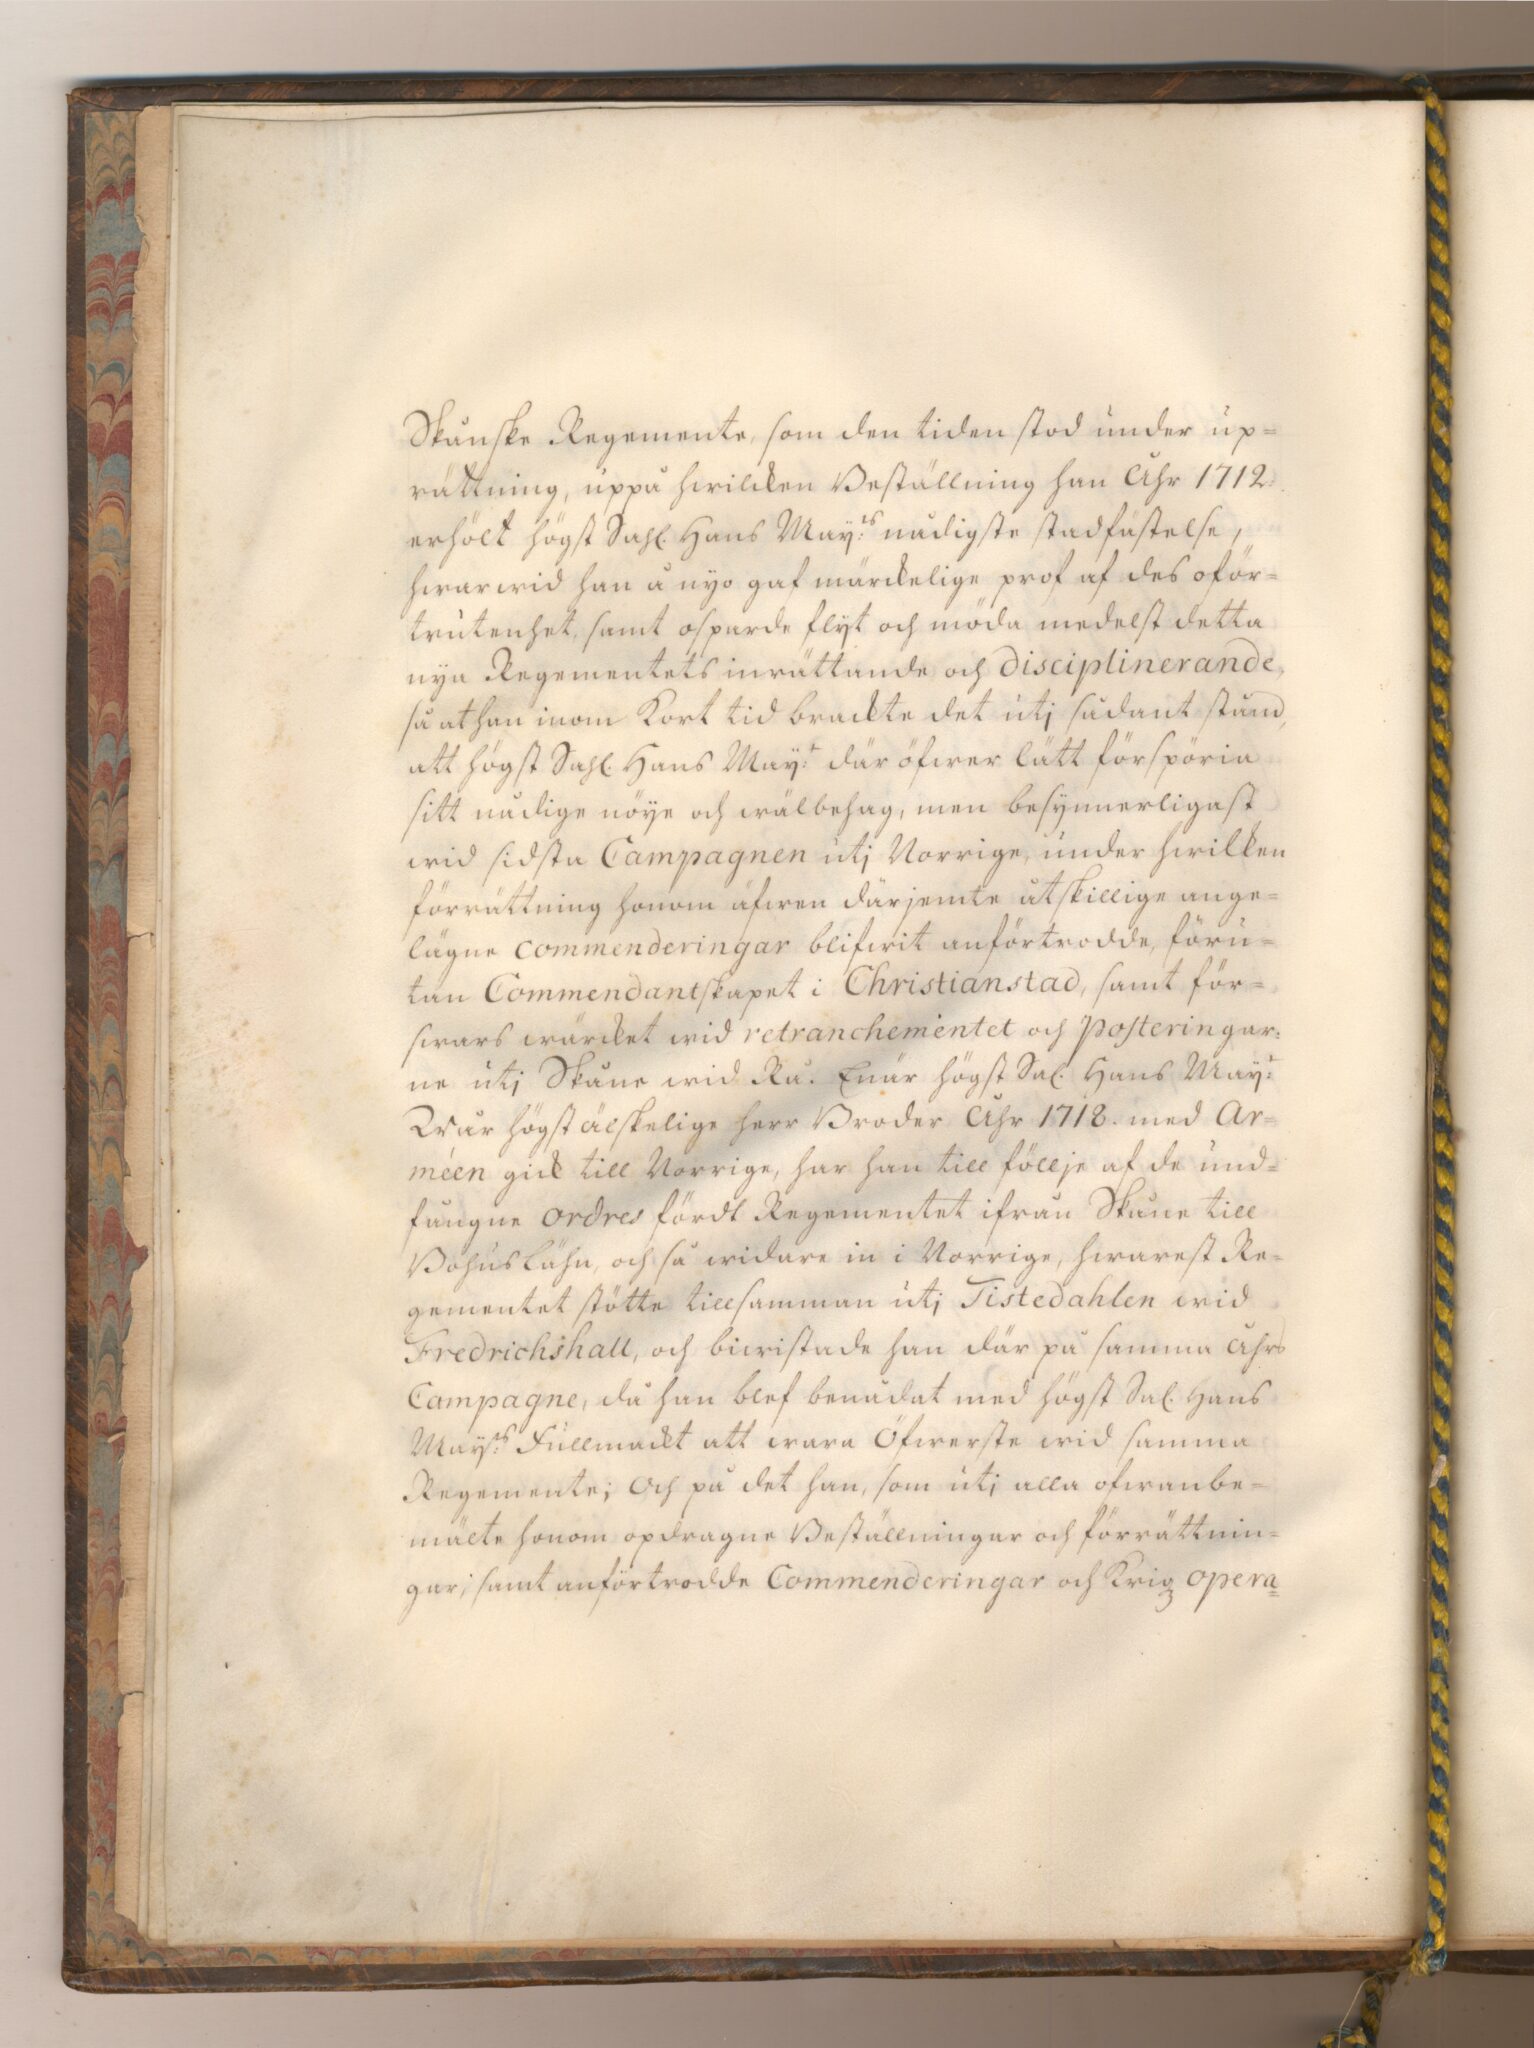 Skånske Regemente, som den tiden stod under up=
rättning, uppå hwilcken Beställning han Åhr 1712.
erhölt högst Sahl. Hans May:ts nådigste stadfästelse,
hwarwid han å nyo gaf märckelige prof af des oför=
trutenhet, samt osparde flyt och möda medelst detta
nya Regementets inrättande och disciplinerande,
så at han inom Kort tid brackte det utj sådant stånd,
att högst Sahl. Hans May:t där öfwer lätt förspöria
sitt nådige nöye och wälbehag, men besynnerligast
wid sidsta Campagnen utj Norrige, under hwilken
förrättning honom äfwen därjemte åtskillige ange=
lägne commenderingar blifwit anförtrodde, föru=
tan Commendantskapet i Christianstad, samt för=
swars wärcket wid retranchementet och Posteringar=
ne utj Skåne wid Rå. Enär högst Sal. Hans May:t
Wår högst älskelige herr Broder Åhr 1718. med Ar=
méen gick till Norrige, har han till föllje af de und=
fångne ordres fördt Regementet ifrån Skåne till
Bohus Lähn, och så widare in i Norrige, hwarest Re=
gementet stötte tillsamman utj Tistedahlen wid
Fredrichshall, och biwistade han där på samma Åhrs
Campagne, då han blef benådat med högst Sal. Hans
May:ts Fullmackt att wara Öfwerste wid samma
Regemente; Och på det han, som utj alla ofwanbe=
mälte honom opdragne Beställningar och förrättnin=
gar, samt anförtrodde Commenderingar och Krigz opera=